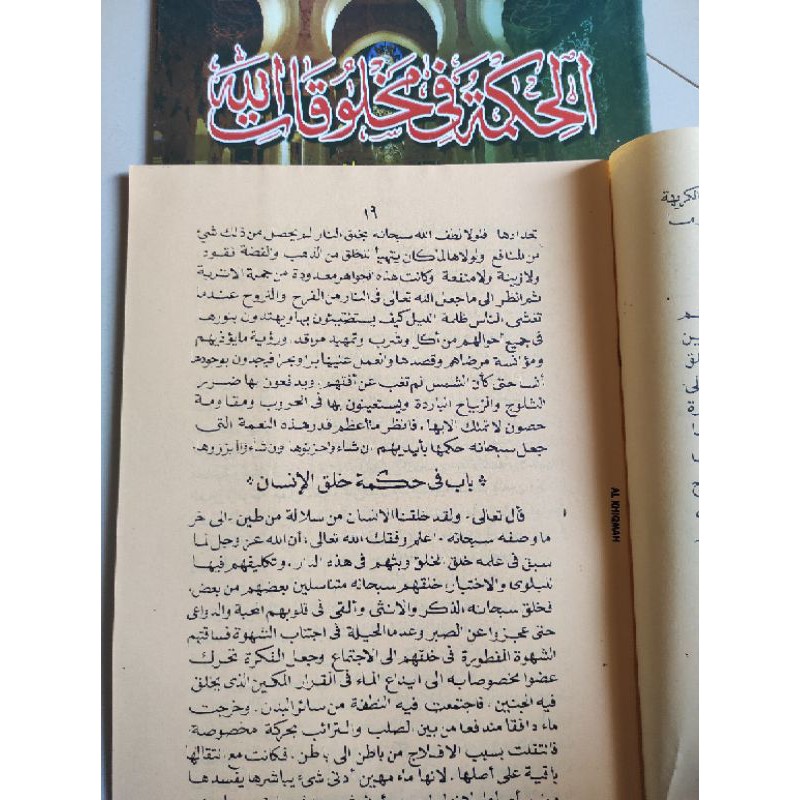 الحكمة في مخلوقات الله
١٦
بحدادها فلولا لطف الله سبحانه بخلق النار لم يحصل من ذلك شئ
من المنافع ولولاها لما كان يتهيأ للخلق من الذهب والفضة نقود
ولا زينة ولا منفعة وكانت هذه الجواهر معدودة من جملة الاتربة
ثم انظر الى ما جعل الله تعالى فى النار من الفرح والتروح عندما
تغشى الناس ظلمة الليل كيف يستضيئون بها ويهتدون بنورها
فى جميع احوالهم من أكل وشرب وتمهيد مراقد، ورؤية ما يؤذيهم
ومؤانسة مرضاهم وقصدها والعمل عليها برا وبحرا فيجدون بوجودها
أنسا حتى كأن الشمس لم تغب عن أفقهم، ويدفعون بها ضرر
الثلوج والرياح الباردة ويستعينون بها فى الحروب ومقاومة
حصون لا تملك الا بها، فانظر ما أعظم قدر هذه النعمة التى
جعل سبحانه حكمها بأيديهم، ان شاءوا خزنوها وان شاءوا أبرزوها.
* باب فى حكمة خلق الإنسان *
قال تعالى، ولقد خلقنا الانسان من سلالة من طين، الى آخر
ما وصفه سبحانه، اعلم وفقك الله تعالى، أن الله عز وجل لما
سبق فى علمه خلق الخلق وبثهم فى هذه الدار، وتكليفهم فيها
للبلوى والاختبار، خلقهم سبحانه متناسلين بعضهم من بعض،
فخلق سبحانه الذكر والانثى وألقى فى قلوبهم المحبة والدواعى
حتى عجزوا عن الصبر وعدموا الحيلة فى اجتناب الشهوة فساقتهم
الشهوة المفطورة فى خلقهم الى الاجتماع وجعل الفكرة تحرك
عضوا مخصوصا به الى ايداع الماء فى القرار المكين الذى يخلق
فيه الجنين، فاجتمعت فيه النطفة من سائر البدن، وخرجت
ماء دافقا مندفعا من بين الصلب والترائب بحركة مخصوصة،
فانتقلت بسبب الافلاج من باطن الى باطن، فكانت مع انتقالها
باقية على أصلها، لانها ماء مهين أدنى شئ يباشرها يفسدها
AL KHIQMAH
الكريهة